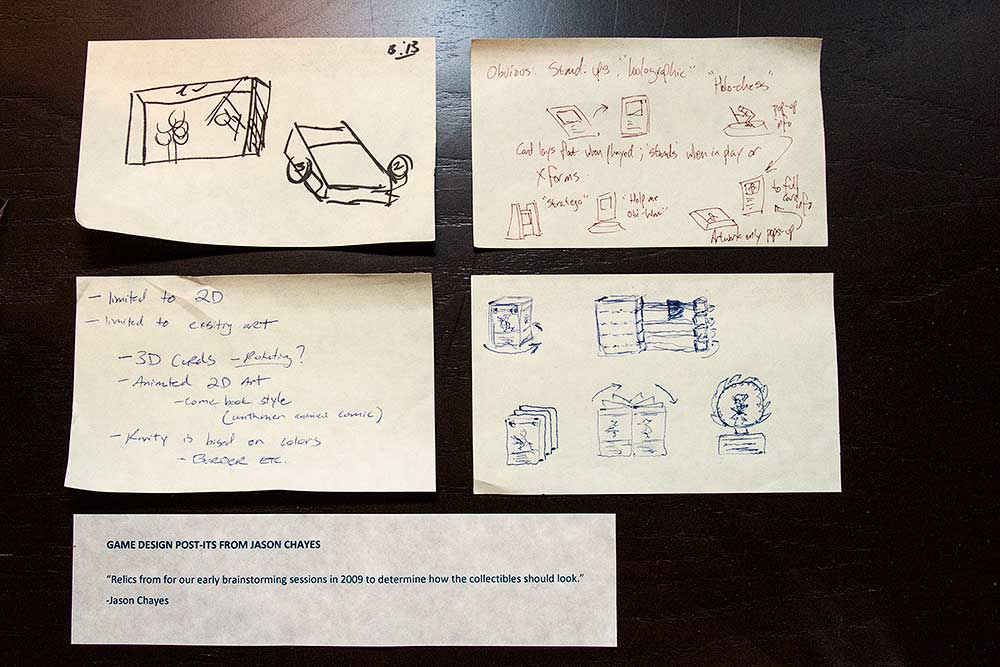 Obvious: Stand-ups, "holographic"
"Holo-chess"
pop-up
info
Card lays flat when played; "stands" when in play or
X forms
"Stratego"
"Help me
Obi-Wan"
to full
card
info
Artwork only pops-up
- limited to 2D
- limited to art
- 3D Cards - Rotating?
- Animated 2D Art
- comic book style
comic)
- Rarity is based on colors
- BORDER ETC.
GAME DESIGN POST-ITS FROM JASON CHAYES
"Relics from for our early brainstorming sessions in 2009 to determine how the collectibles should look."
-Jason Chayes